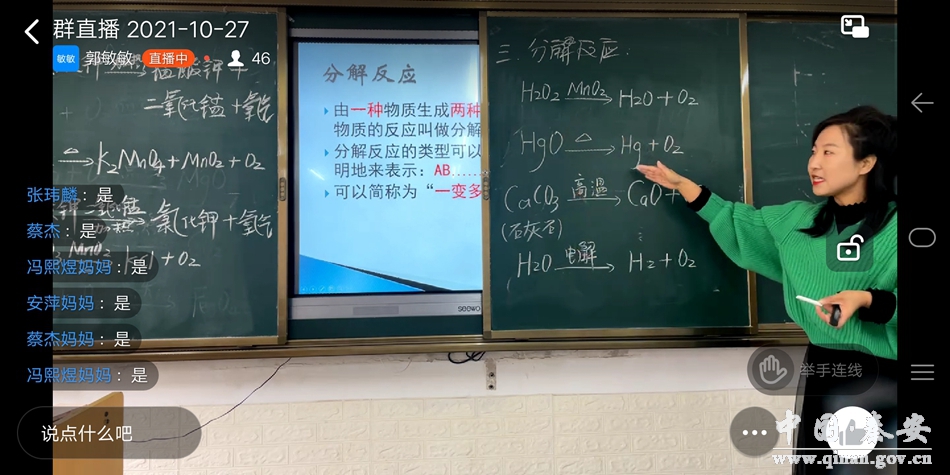 群直播 2021-10-27
敏敏 郭敏敏 直播中 46
钾 + 
二氧化锰 + 氧气
△ K2MnO4 + MnO2 + O2
氯化钾 + 氧气
MnO2 KCl + O2
张玮麟：是
蔡杰：是
冯熙煜妈妈：是
安萍妈妈：是
蔡杰妈妈：是
冯熙煜妈妈：是
说点什么吧
分解反应
由一种物质生成两种
物质的反应叫做分解
分解反应的类型可以
明地来表示：AB……
可以简称为“一变多
seewo
三、分解反应：
H2O2 MnO2 H2O + O2
HgO △ Hg + O2
CaCO3 高温 CaO +
(石灰石)
H2O 电解 H2 + O2
举手连线
中国·秦安
www.qinan.gov.cn